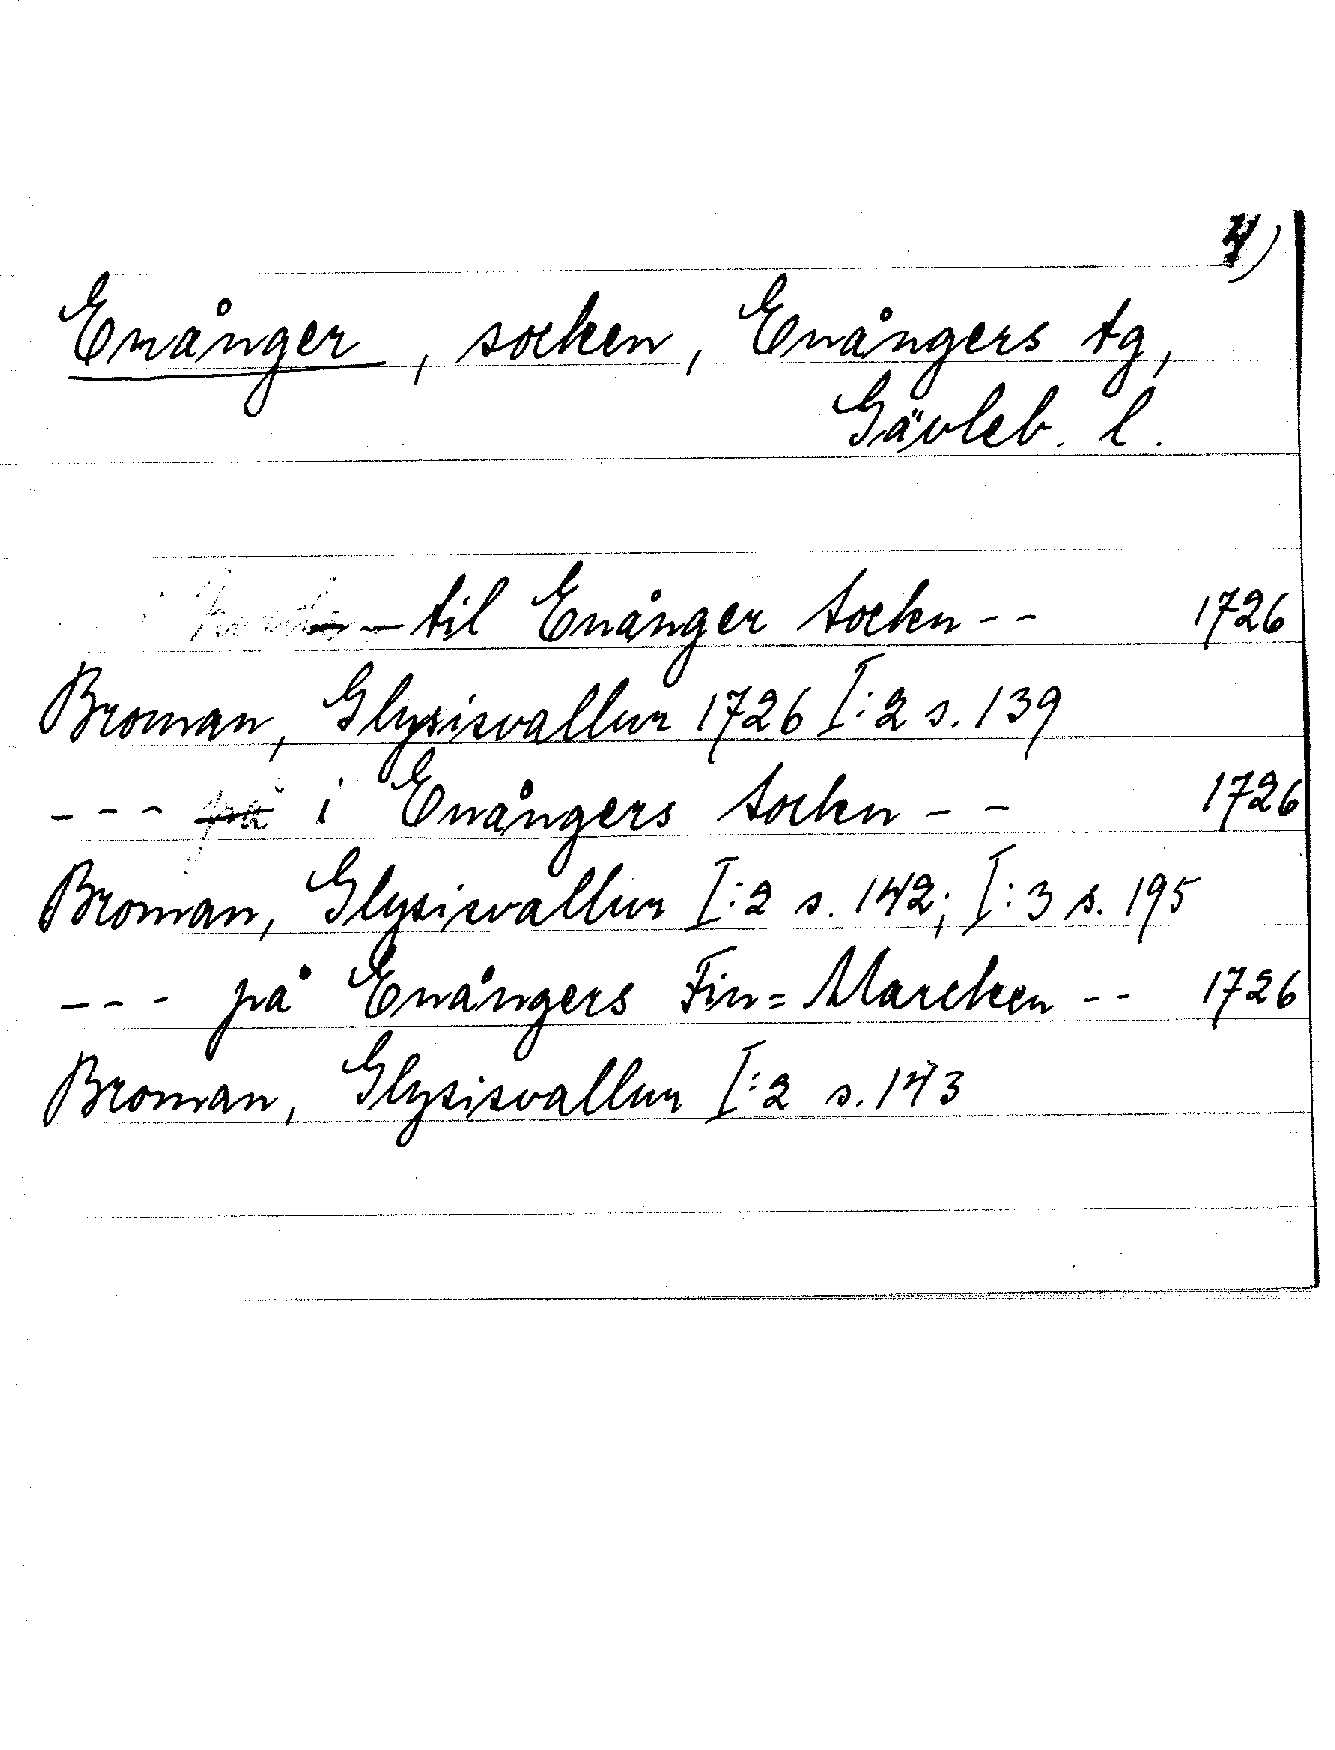 4)
Enånger, socken, Enångers tg,
Gävleb. l.
– til Enånger Sockn -- 1726
Broman, Glysisvallur 1726 I:2 s. 139
--- på i Enångers Sockn -- 1726
Broman, Glysisvallur I:2 s. 142; I:3 s. 195
--- på Enångers Fin=Marcken -- 1726
Broman, Glysisvallur I:2 s. 143